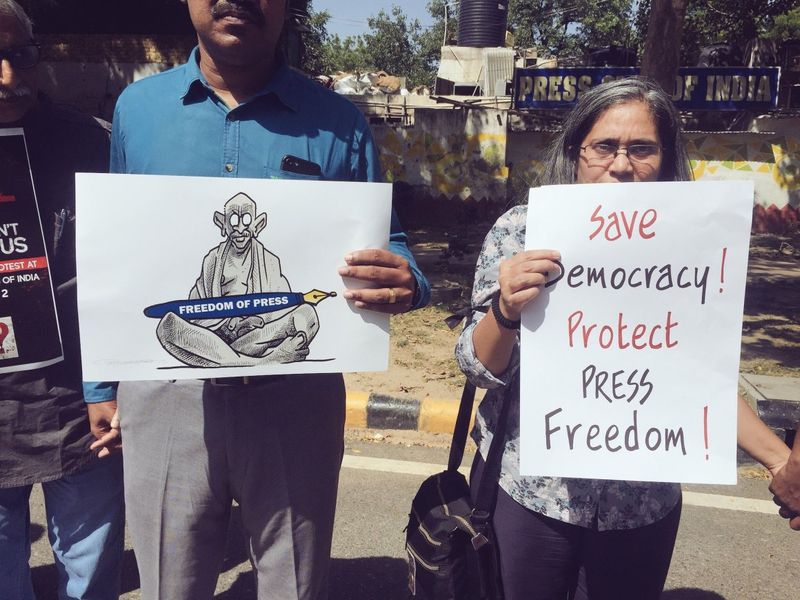 PRESS OF INDIA
N'T
US
ROTEST AT
OF INDIA
2
?
FREEDOM OF PRESS
Save
Democracy!
Protect
PRESS
Freedom!